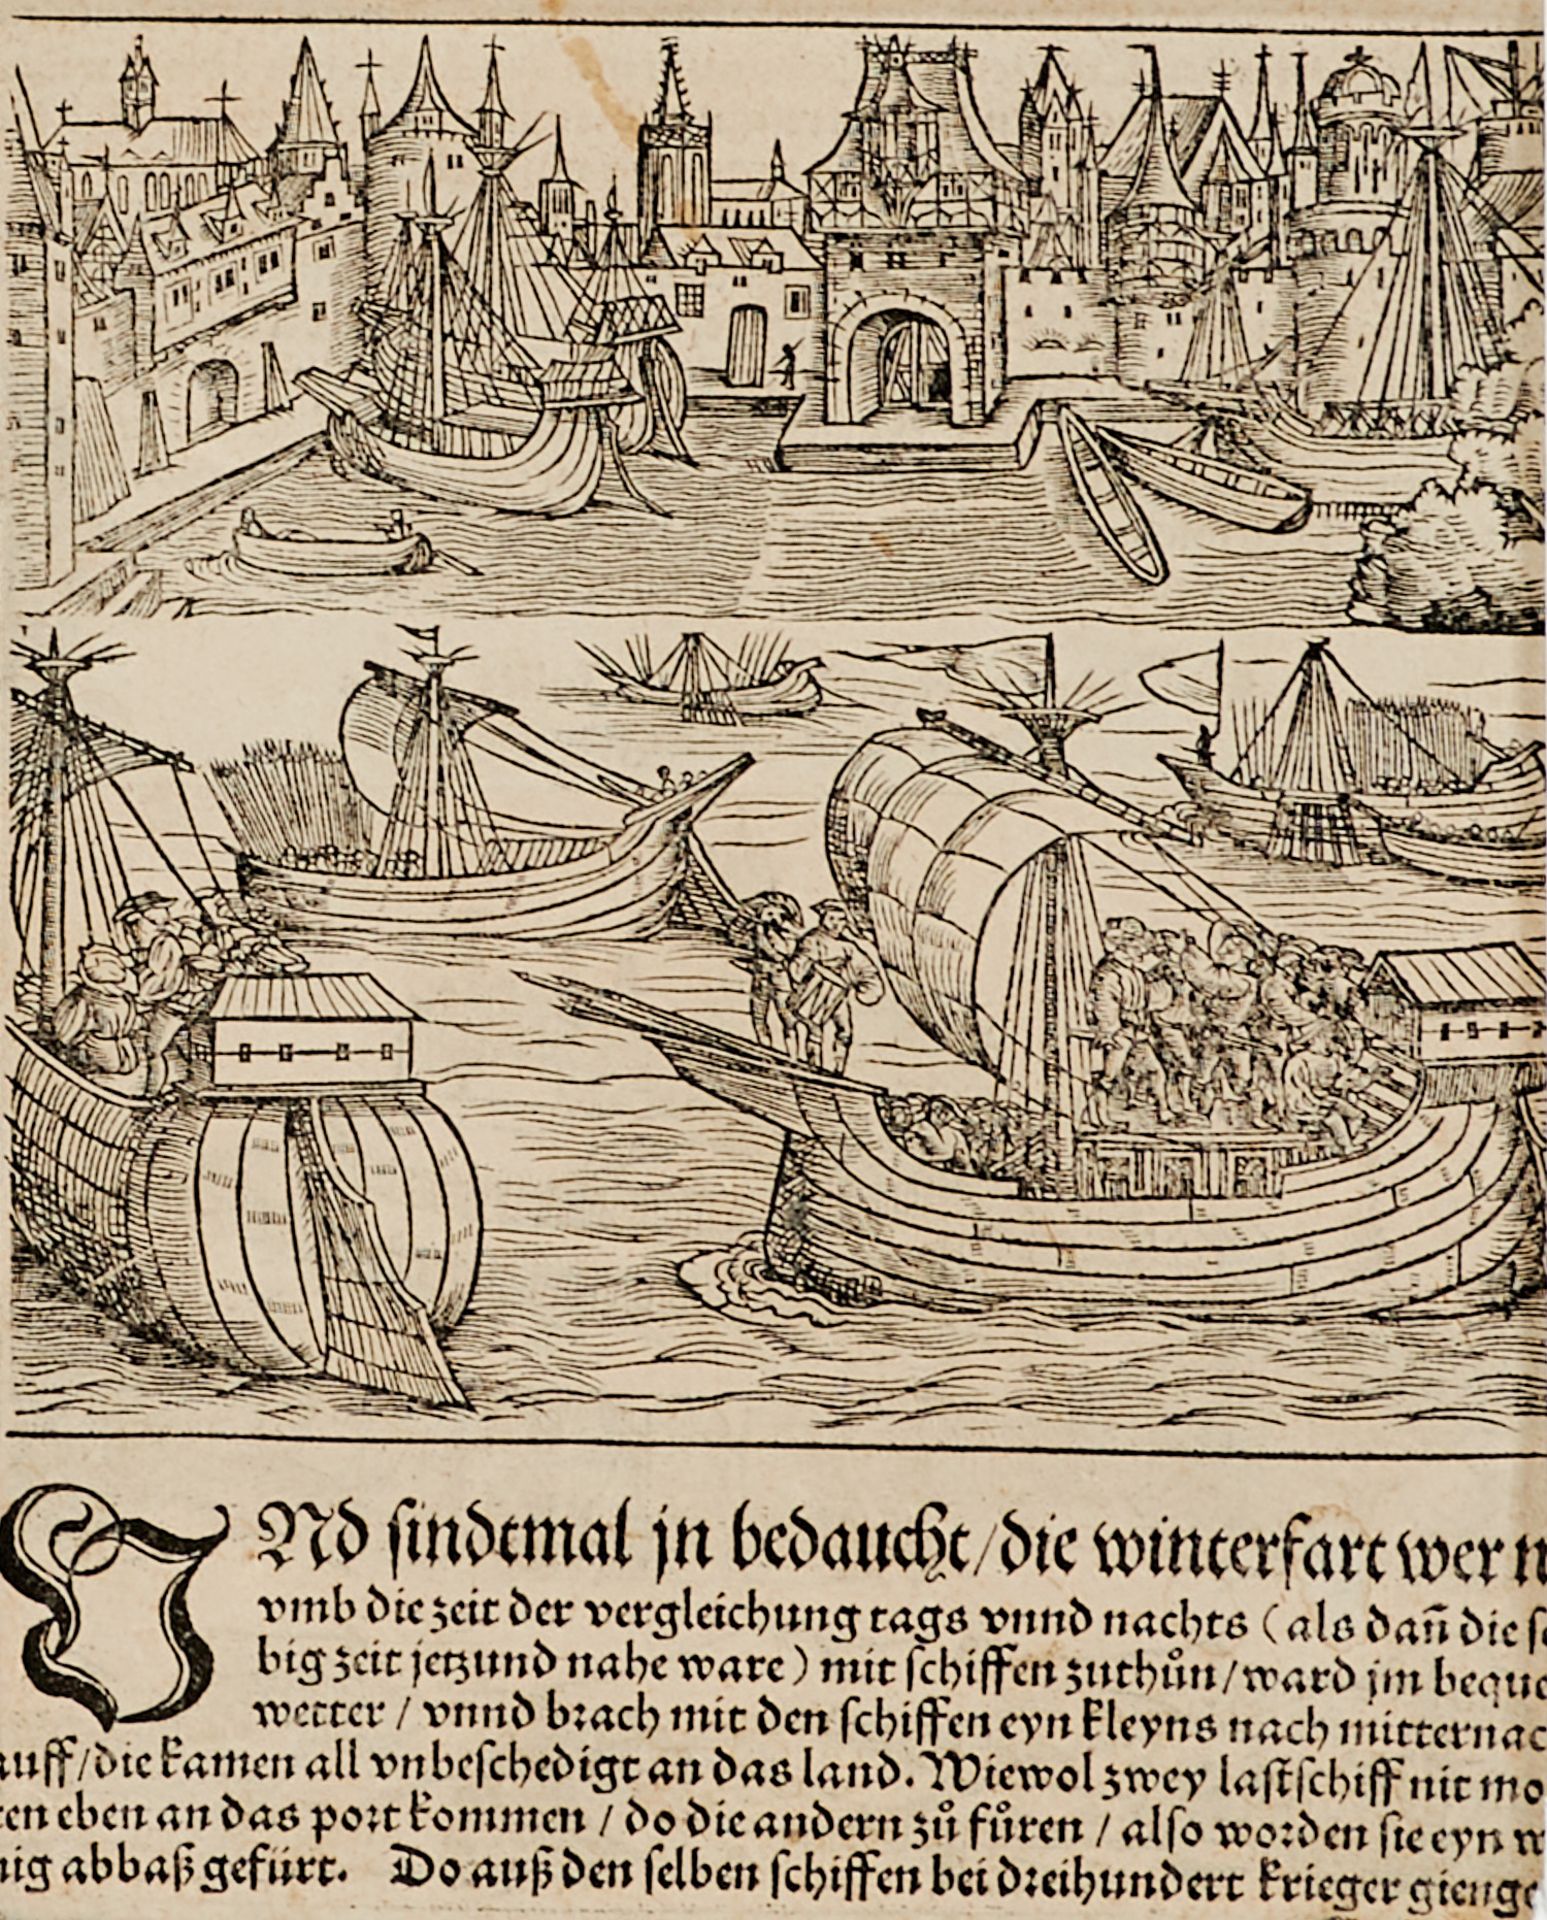 VNd sindtmal jn bedaucht / die winterfart wer
vmb die zeit der vergleichung tags vnnd nachts ( als dañ die
big zeit jetzund nahe ware ) mit schiffen zuthůn / ward jm
wetter / vnnd brach mit den schiffen eyn kleyns nach
auff / die kamen all vnbeschedigt an das land. Wiewol zwey lastschiff nit
eben an das port kommen / do die andern zů fůren / also worden sie eyn
abbaß gefürt. Do auß den selben schiffen bei dreihundert krieger